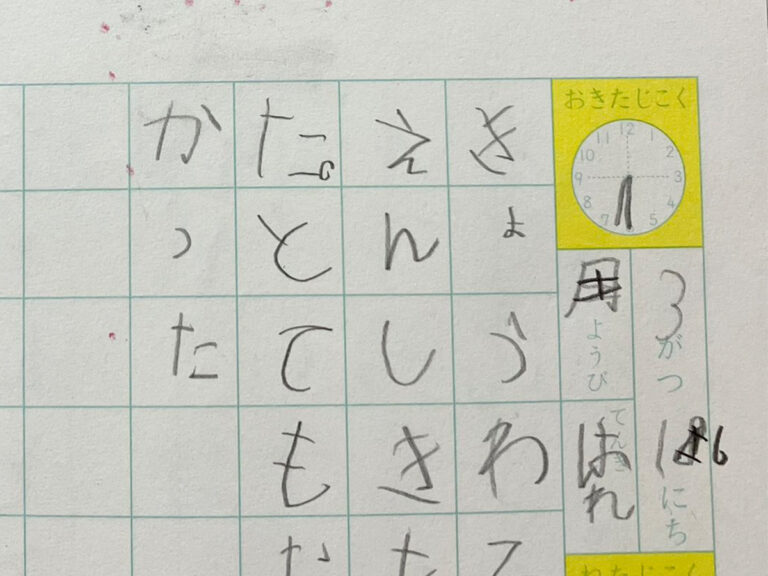 おきたじこく
12
1
2
3
5
7
8
9
10
11
3がつ
にち
ようび
てんき
はれ
きょうわ
えんしき
た。とても
かった